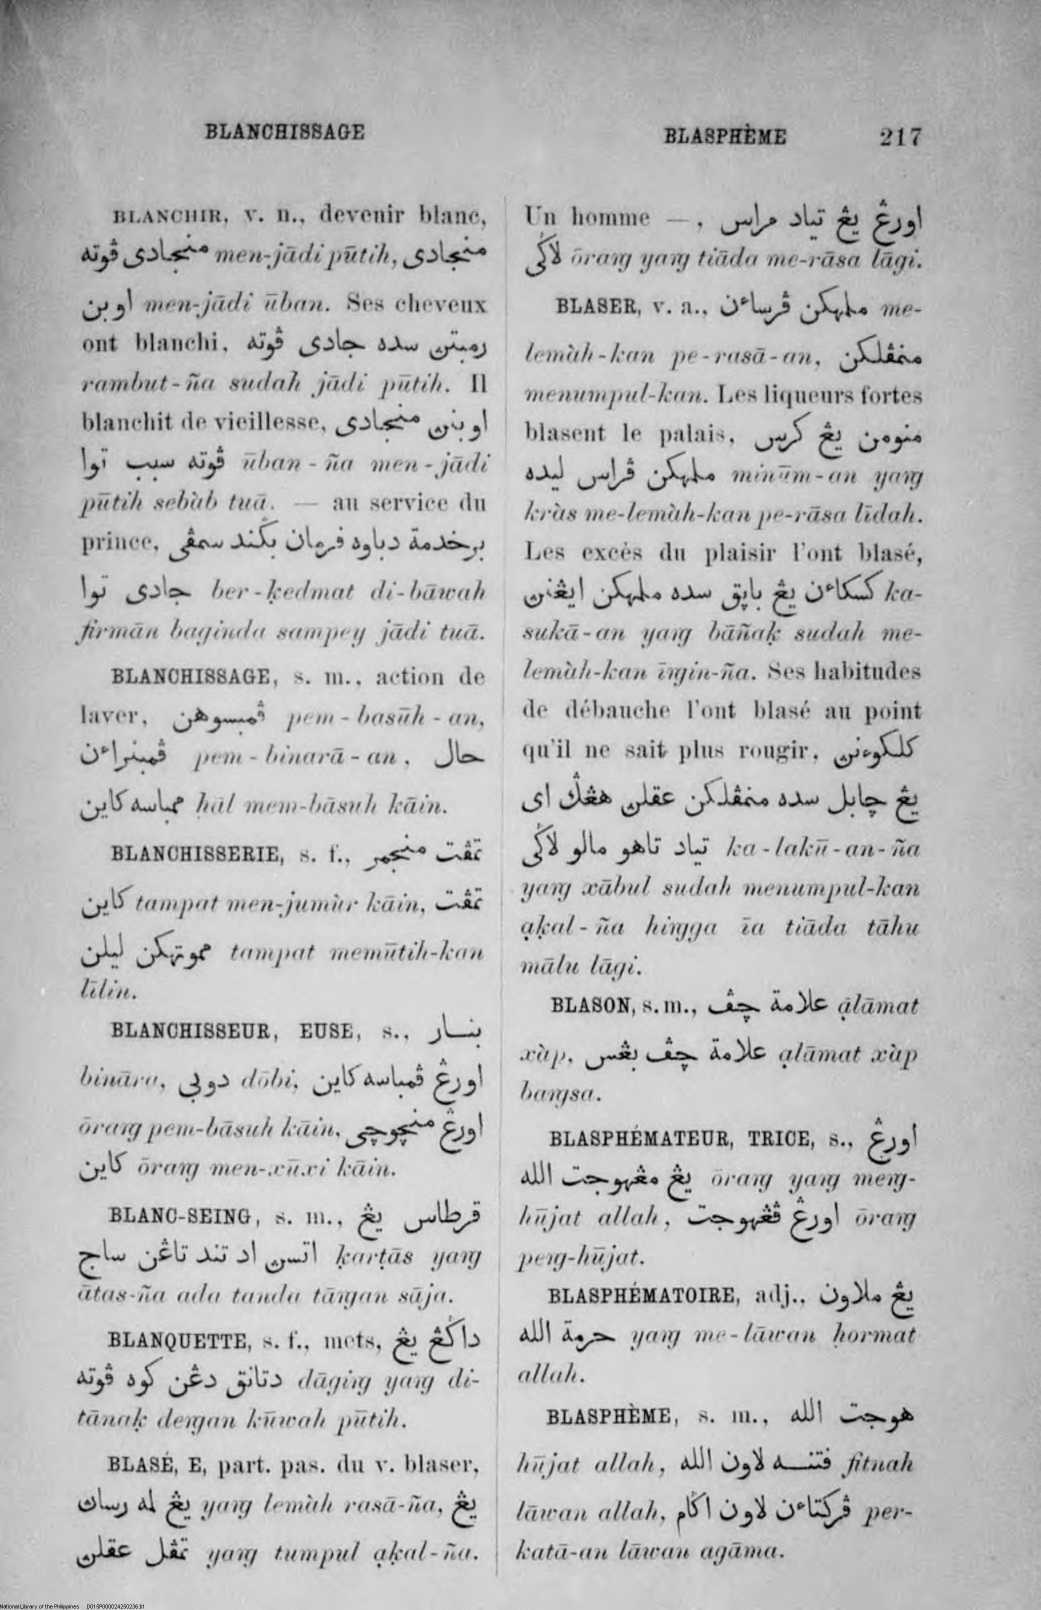 BLANCHISSAGE
BLASPHÈME 217
BLANCHIR, v. n., devenir blanc,
منجادى ڤوته men-jādi pūtih, منجادى
اوبن men-jādi ūban. Ses cheveux
ont blanchi, رمبتن سده جادى ڤوته
rambut-ña sudah jādi pūtih. Il
blanchit de vieillesse, اوبنن منجادى
ڤوته سبب توا ūban-ña men-jādi
pūtih sebàb tuā. — au service du
prince, برخدمة دباوه فرمان بݢند سمڤى
جادى توا ber-ḳedmat di-bāwah
firmān baginda sampey jādi tuā.
BLANCHISSAGE, s. m., action de
laver, ڤمبسوهن pem-basūh-an,
ڤمبنراءن pem-binarā-an, حال
ممباسه كاين ḥāl mem-bāsuh kāin.
BLANCHISSERIE, s. f., تمڤت منجمر
كاين tampat men-jumùr kāin, تمڤت
مموتهكن ليلن tampat memūtih-kan
līlin.
BLANCHISSEUR, EUSE, s., بنار
bināra, دوبي dōbi, اورڠ ڤمباسه كاين
ōrang pem-bāsuh kāin, اورڠ منچوچى
كاين ōrang men-xūxi kāin.
BLANC-SEING, s. m., قرطاس يڠ
اتسن اد تند تاڠن ساج ḳarṭās yang
ātas-ña ada tanda tāngan sāja.
BLANQUETTE, s. f., mets, داݢڠ يڠ
دتانق دڠن كوه ڤوته dāging yang di-
tānaḳ dengan kūwah pūtih.
BLASÉ, E, part. pas. du v. blaser,
يڠ لمه رسان yang lemàh rasā-ña, يڠ
تمڤل عقلن yang tumpul aḳal-ña.
Un homme —, اورڠ يڠ تياد مراس
لاݢى ōrang yang tiāda me-rāsa lāgi.
BLASER, v. a., ملمهكن ڤرساءن me-
lemàh-kan pe-rasā-an, منمڤلكن
menumpul-kan. Les liqueurs fortes
blasent le palais, منومن يڠ كرس
ملمهكن ڤراس ليده minūm-an yang
kràs me-lemàh-kan pe-rāsa līdah.
Les excès du plaisir l'ont blasé,
كسكاءن يڠ باڽق سده ملمهكن ايڠنن ka-
sukā-an yang bāñaḳ sudah me-
lemàh-kan īngin-ña. Ses habitudes
de débauche l'ont blasé au point
qu'il ne sait plus rougir, كلكوءنن
يڠ چابل سده منمڤلكن عقلن هڠݢ اى
تياد تاهو مالو لاݢى ka-lakū-an-ña
yang xābul sudah menumpul-kan
aḳal-ña hingga īa tiāda tāhu
mālu lāgi.
BLASON, s. m., علامة چڤ alāmat
xàp, علامة چڤ بڠس alāmat xàp
bangsa.
BLASPHÉMATEUR, TRICE, s., اورڠ
يڠ مڠهوجت الله ōrang yang meng-
hūjat allah, اورڠ ڤڠهوجت ōrang
peng-hūjat.
BLASPHÉMATOIRE, adj., يڠ ملاون
حرمة الله yang me-lāwan ḥormat
allah.
BLASPHÈME, s. m., هوجت الله
hūjat allah, فتنه لاون الله fitnah
lāwan allah, ڤركتاءن لاون اݢام per-
katā-an lāwan agāma.
National Library of the Philippines